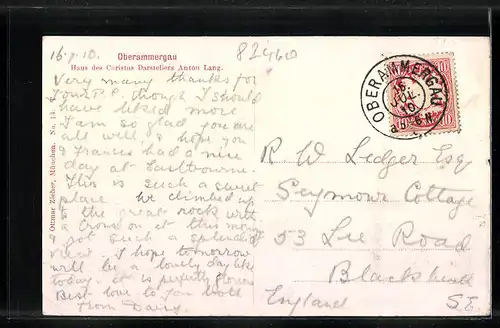 16.7.10.
82460
Oberammergau
Haus des Christus Darstellers Anton Lang.
Very many thanks for
your P.P. though I should
have liked more
I am so glad you are
all well & hope you
& Frances had a nice
day at Eastbourne.
This is such a sweet
place. We climbed up
to the great rock with
a cross on it this morn
& got such a splendid
view. I hope tomorrow
will be a lovely day like
today. it is perfectly glorious
Best love to you both
from
Ottmar Zieher, München. No. 13.
OBERAMMERGAU
JUL.
10
10
R. W. Ledger Esq
Seymour Cottage
53 Lee Road
Blackheath
England S.E.